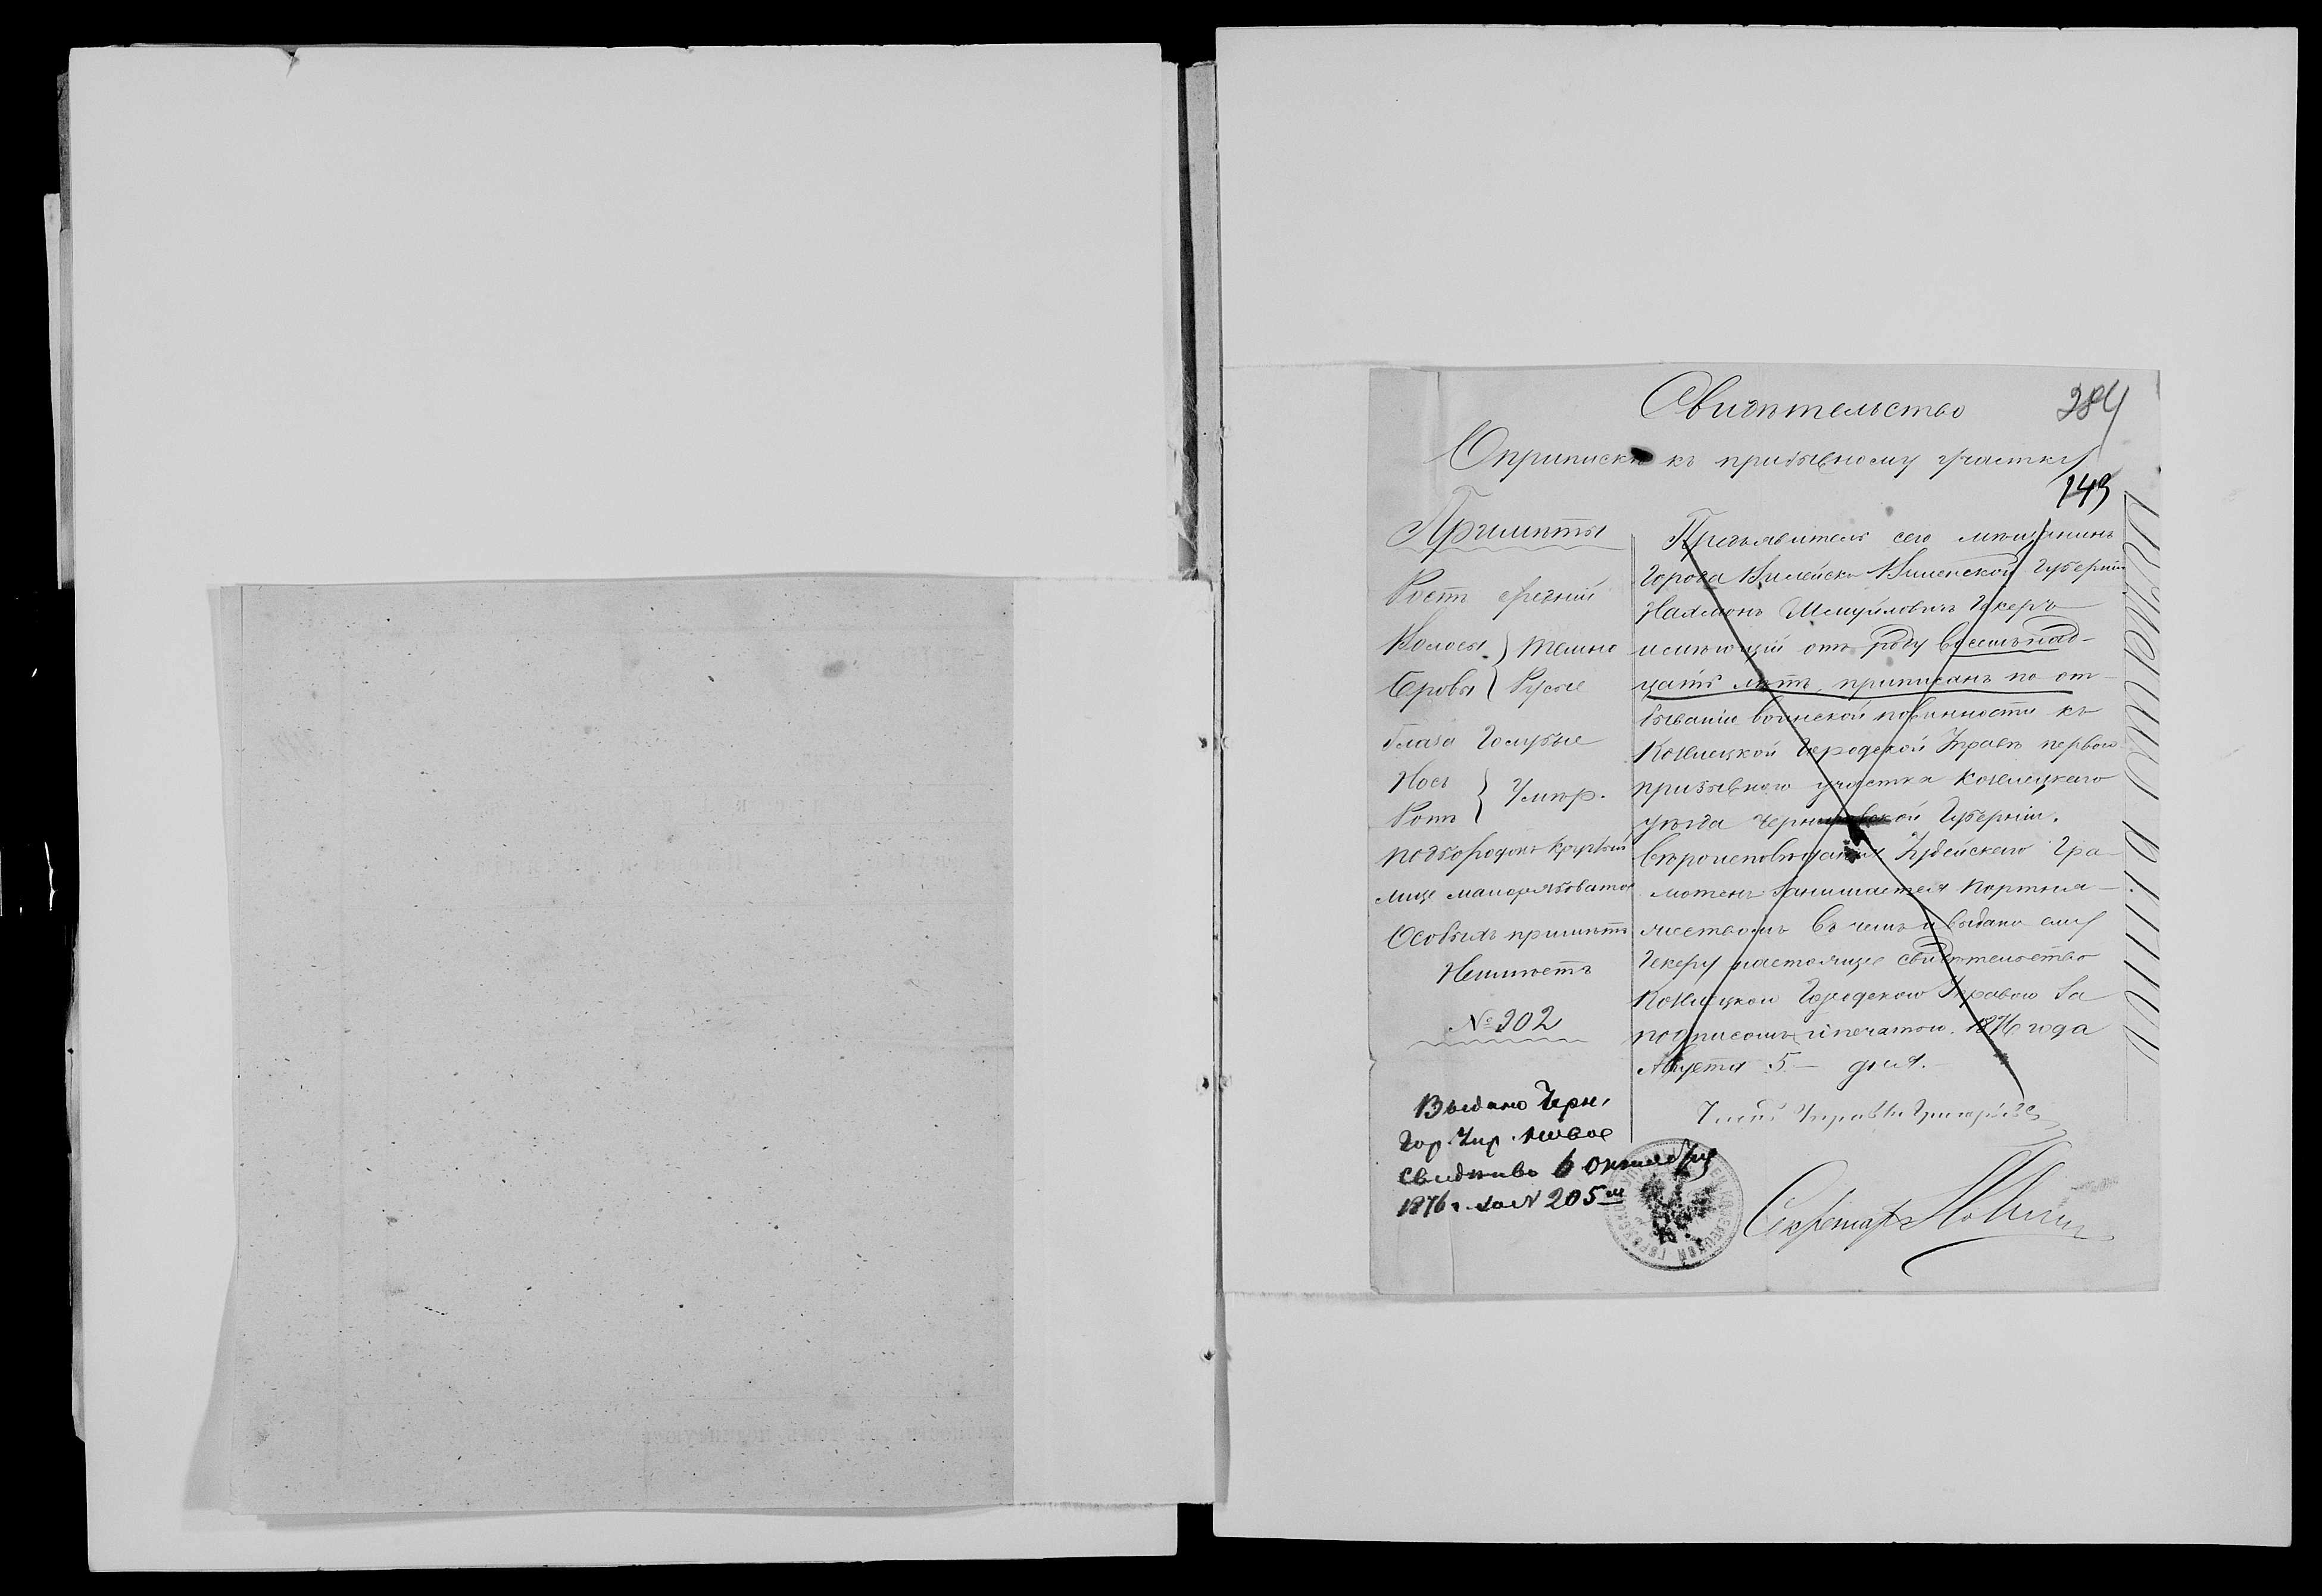 Свидѣтельство
284
О припискѣ къ призывному участку
143
Примѣты
Ростъ средній
Волосы } темно
Брови } Русые
Глаза Голубые
Носъ } Умѣр.
Ротъ
подбородокъ круглый
лице малорябоватое
Особыхъ примѣтъ
Неимѣетъ
№ 202
Предъявитель сего мѣщанинъ
города Вилейска Виленской Губерніи
имѣющій отъ роду восемьнад-
цать лѣтъ, приписанъ по от-
быванію воинской повинности къ
Козелецкой Городской Управѣ перваго
призывного участка Козелецкаго
уѣзда Черниговской Губерніи.
Вѣроисповѣданія Іудейскаго Гра-
мотенъ занимается Портня-
жествомъ въ чемъ и выдано ему
настоящее свидѣтельство
Козелецкою Городскою Управою за
подписомъ и печатью. 1876 года
Августа 5 - дня.
Членъ Управы
Секретарь
Выдано Черн.
Гор. Упр. новое
6 Октября
1876 г. за N 205